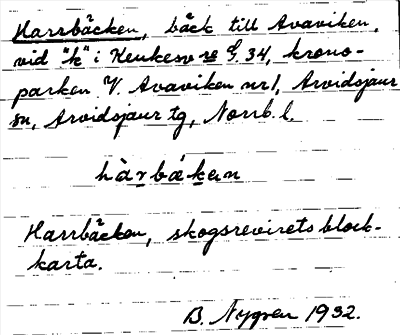 Harrbäcken, bäck till Avaviken,
vid "k" i Keukesv re g. 34, krono-
parken V. Avaviken nr 1, Arvidsjaur
sn, Arvidsjaur tg, Norrb. l.
hàrbákein
Harrbäcken, skogsrevirets block-
karta.
B. Nygren 1932.